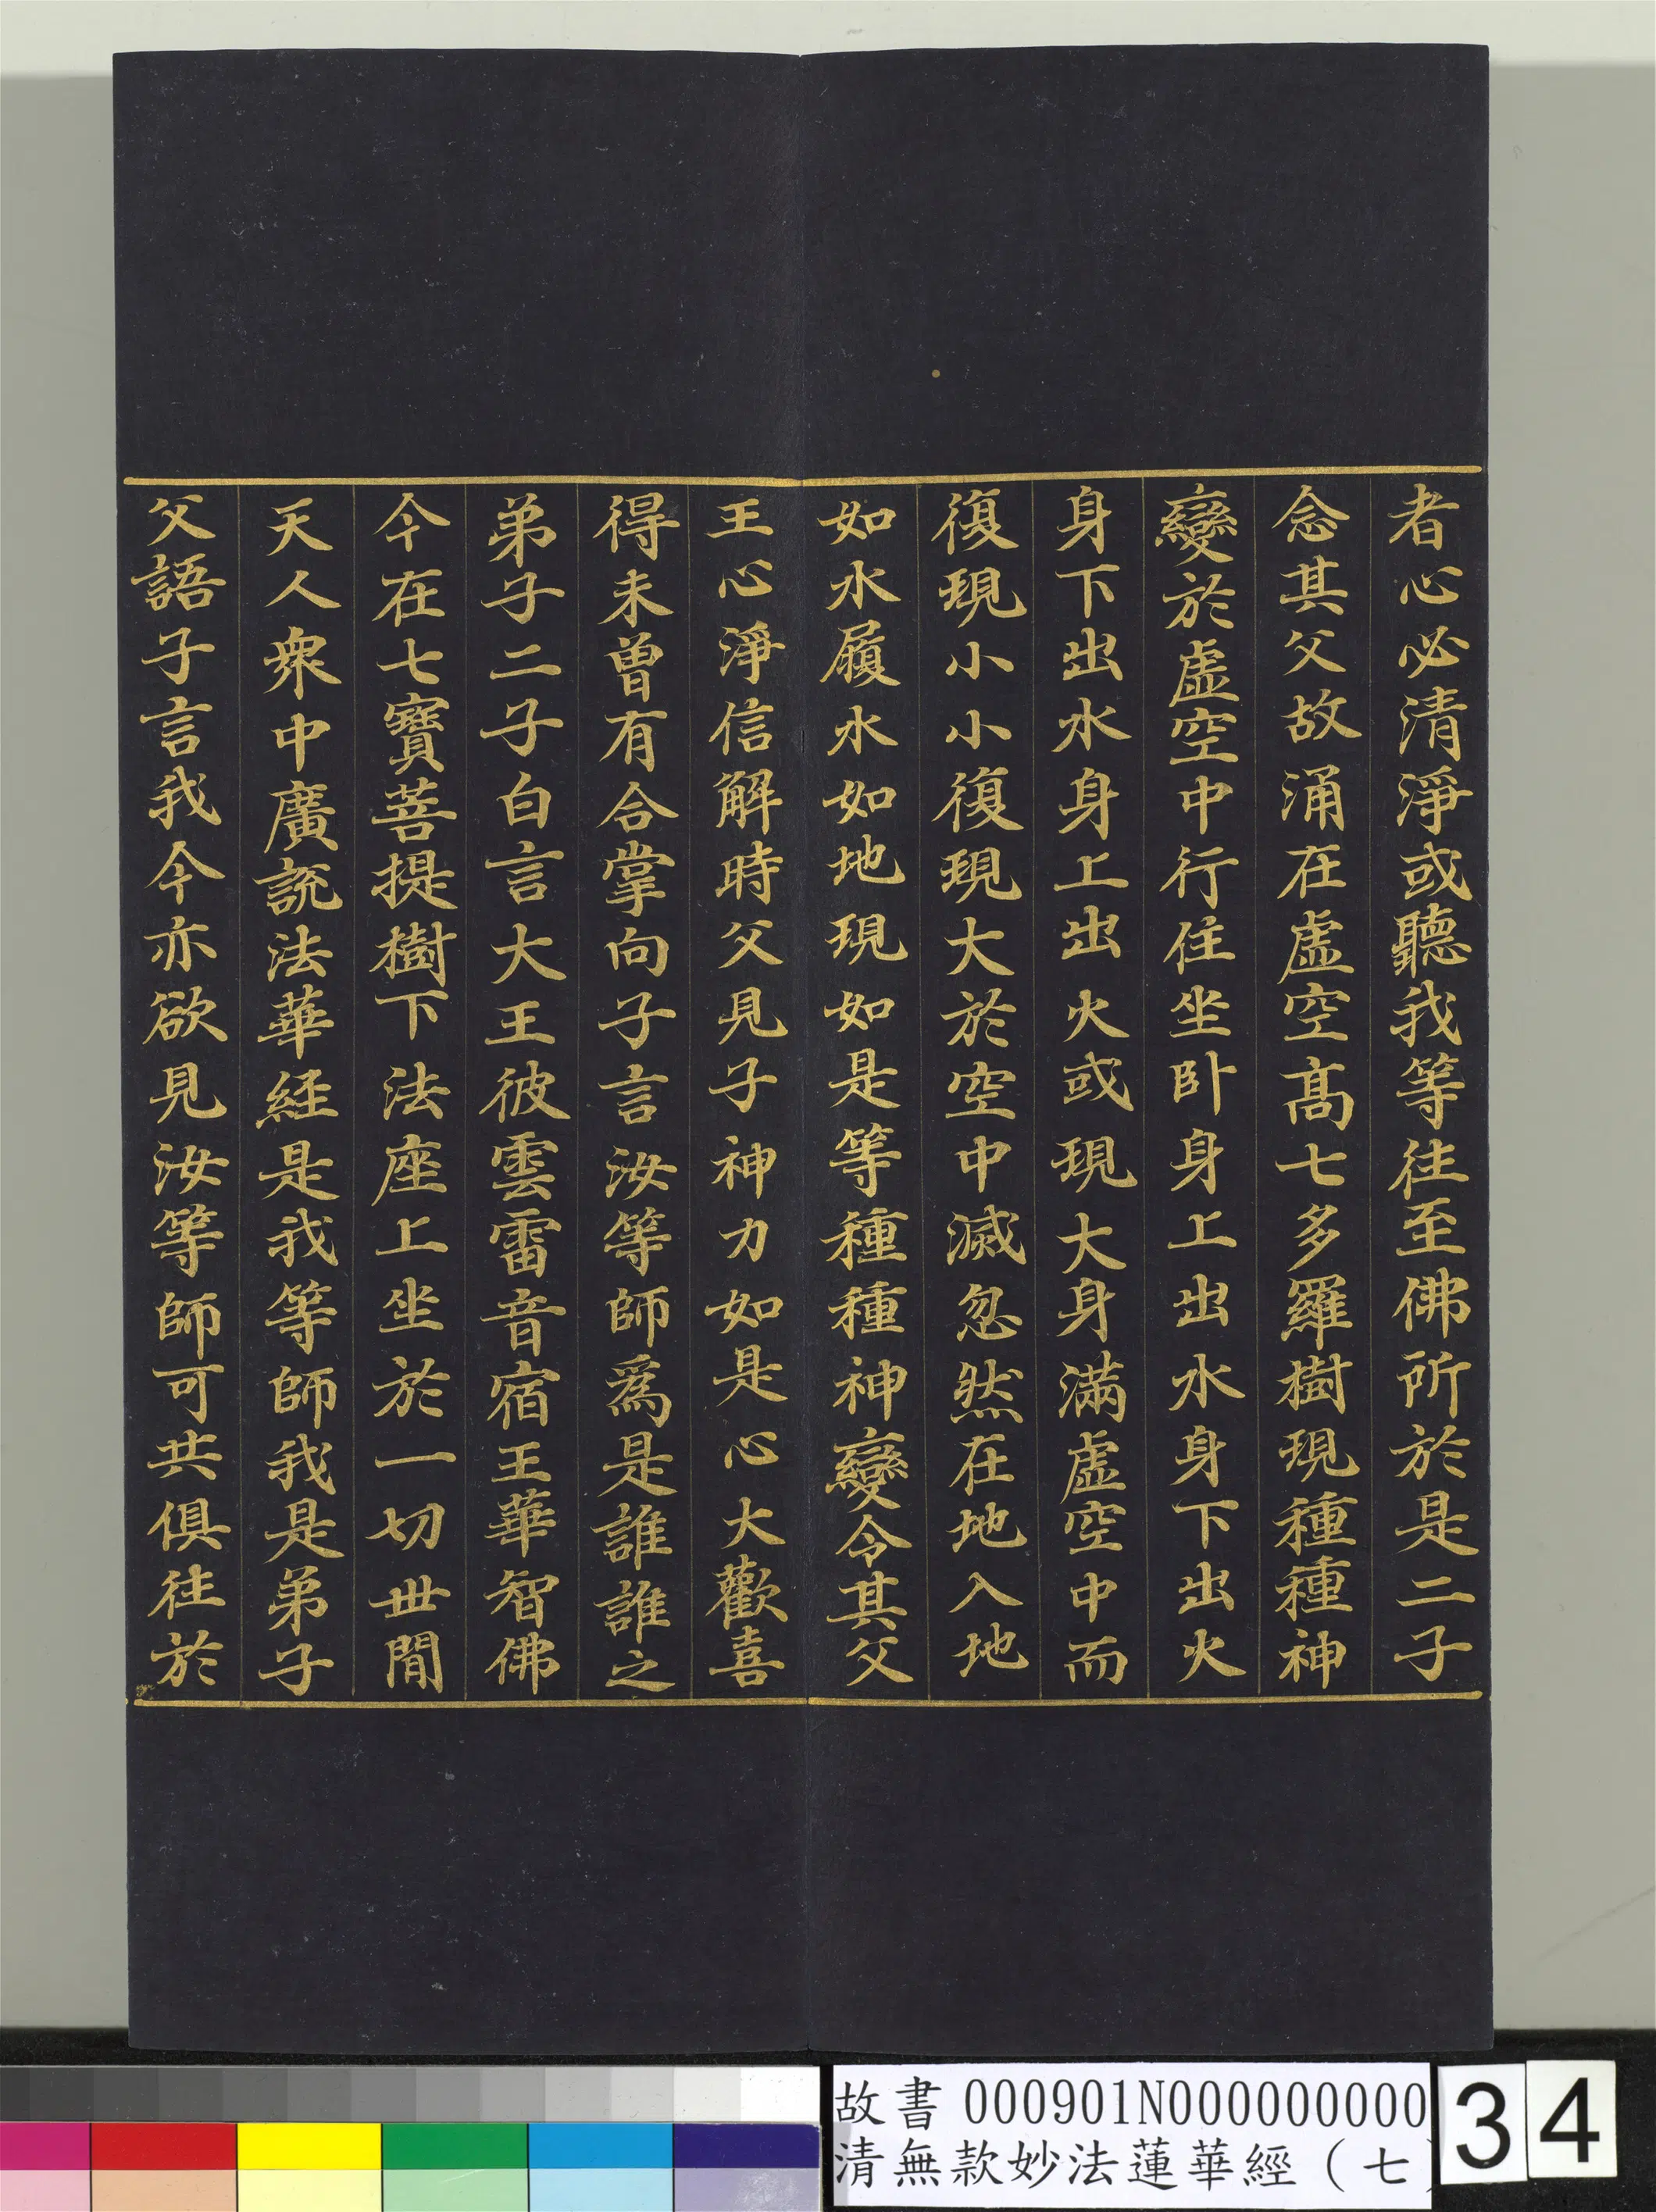 者心必清淨或聽我等往至佛所於是二子
念其父故涌在虛空高七多羅樹現種種神
變於虛空中行住坐臥身上出水身下出火
身下出水身上出火或現大身滿虛空中而
復現小小復現大於空中滅忽然在地入地
如水履水如地現如是等種種神變令其父
王心淨信解時父見子神力如是心大歡喜
得未曾有合掌向子言汝等師為是誰誰之
弟子二子白言大王彼雲雷音宿王華智佛
今在七寶菩提樹下法座上坐於一切世間
天人眾中廣說法華經是我等師我是弟子
父語子言我今亦欲見汝等師可共俱往於
故書 000901N000000000
清無款妙法蓮華經（七
34